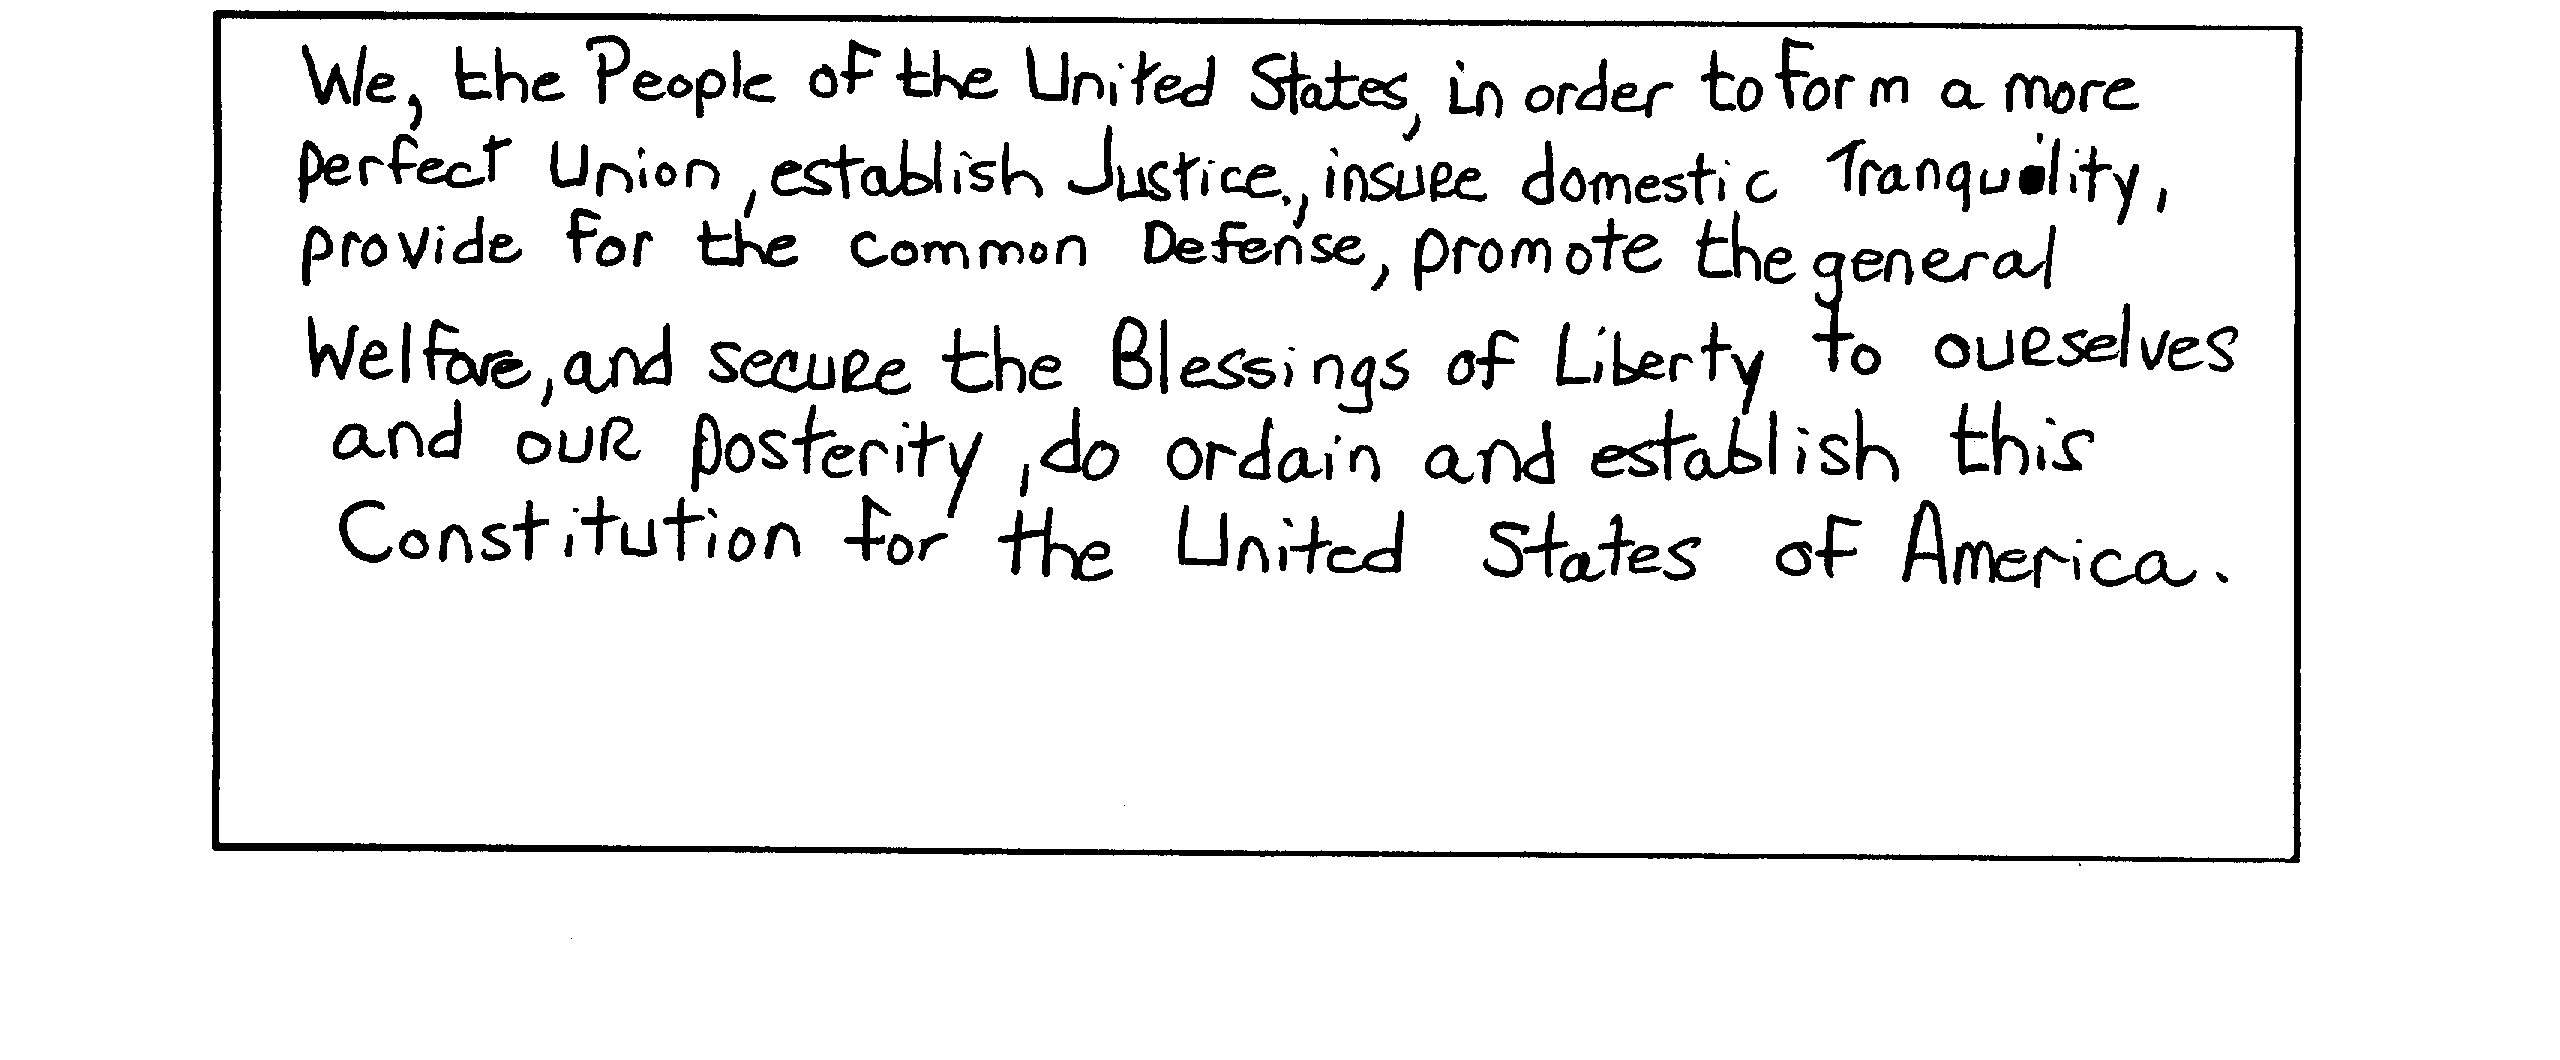 We, the People of the United States, in order to form a more
perfect Union, establish Justice, insure domestic Tranquility,
provide for the common Defense, promote the general
Welfare, and secure the Blessings of Liberty to ourselves
and our posterity, do ordain and establish this
Constitution for the United States of America.